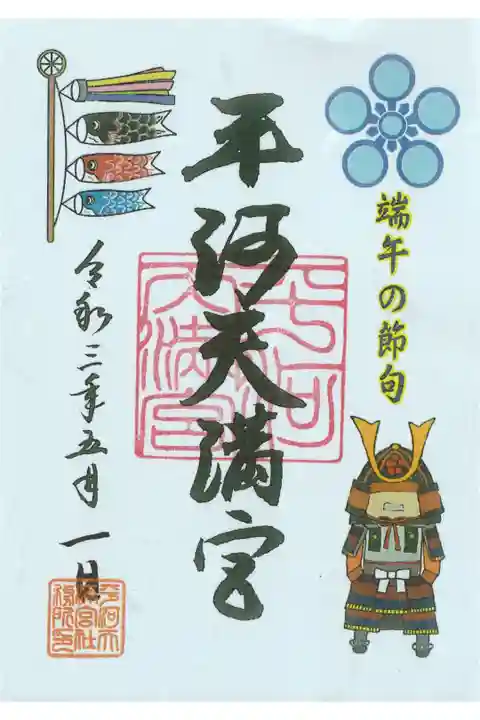 端午の節句
平河天満宮
令和三年五月一日
平河天満宮